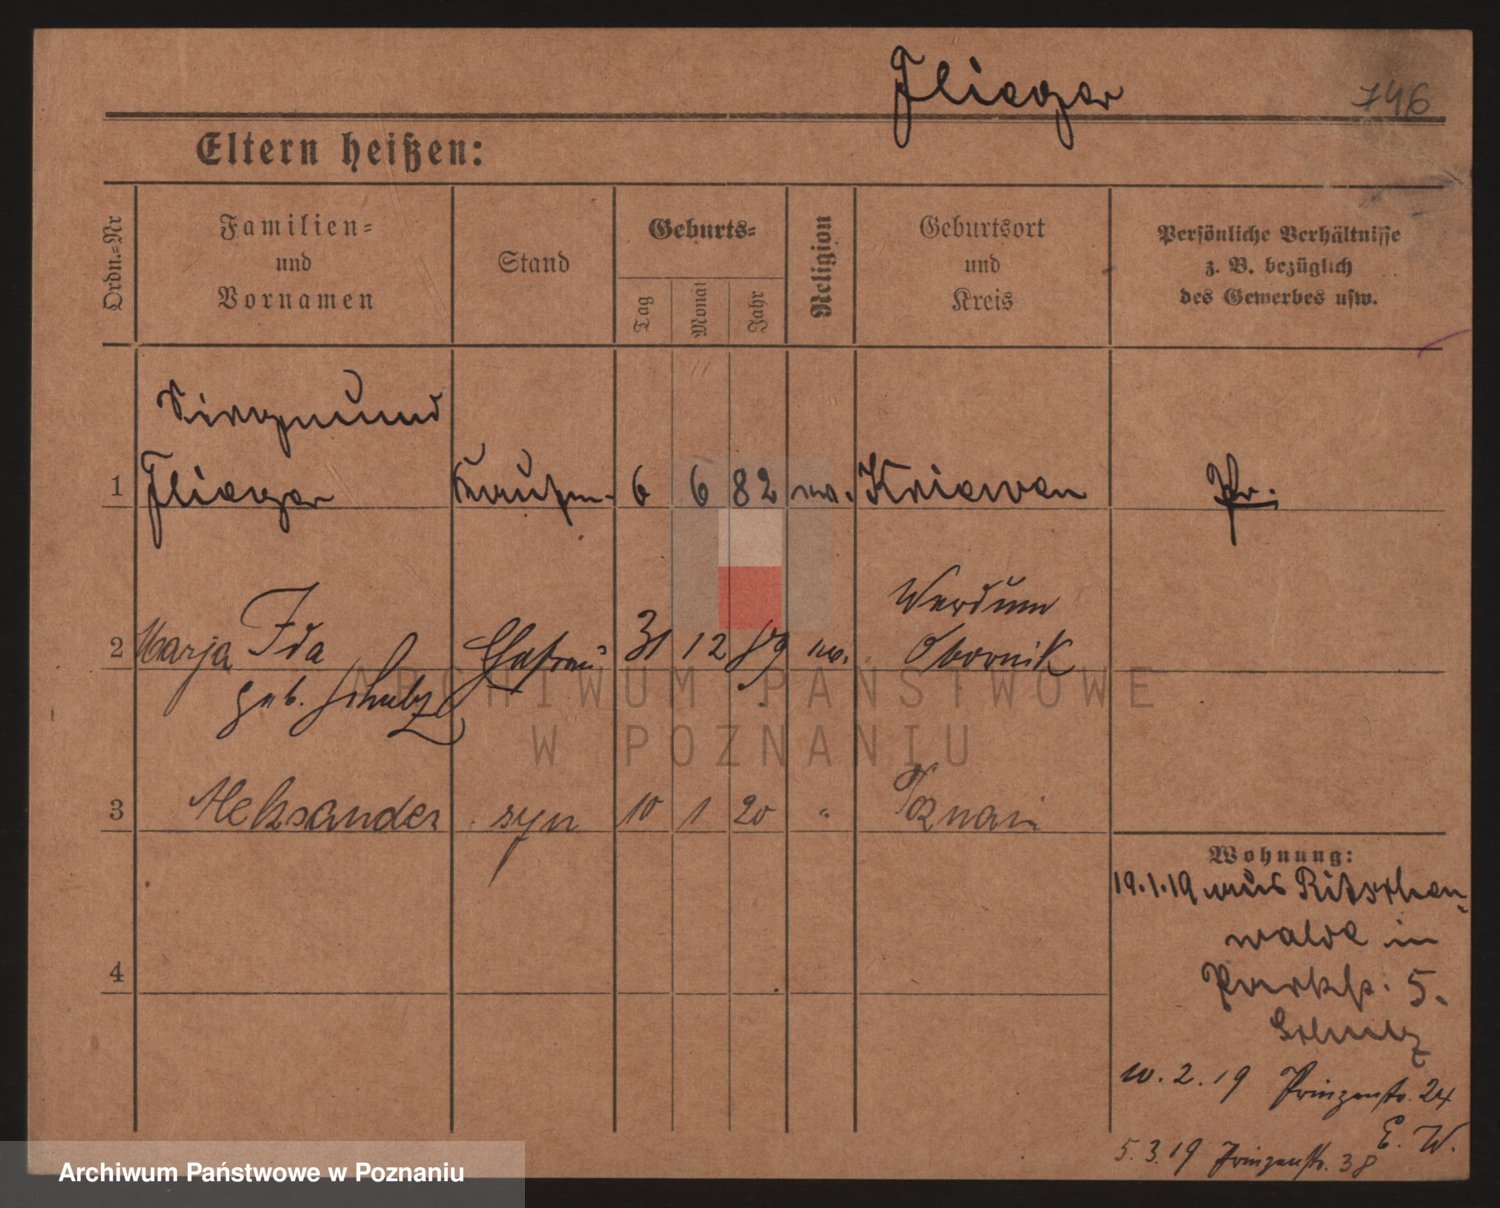 Flieger
746
Eltern heißen:
Ordn.=Nr
Familien=
und
Vornamen
Stand
Geburts=
Tag
Monat
Jahr
Religion
Geburtsort
und
Kreis
Persönliche Verhältnisse
z. B. bezüglich
des Gewerbes usw.
Siegmund
1 Flieger 6 6 82 ev. Kriewen Pr.
Werdum
2 Marja Ida Ehefrau 31 12 89 ev. Obornik
geb. Schulz
3 Aleksander syn 10 1 20 " Poznań
4
Wohnung:
19.1.19 aus Ritschen-
walde in
Parkstr. 5.
Schulz
2.19 Prinzenstr. 24
E. W.
5.3.19 Prinzenstr. 38
ARCHIWUM PAŃSTWOWE
W POZNANIU
Archiwum Państwowe w Poznaniu